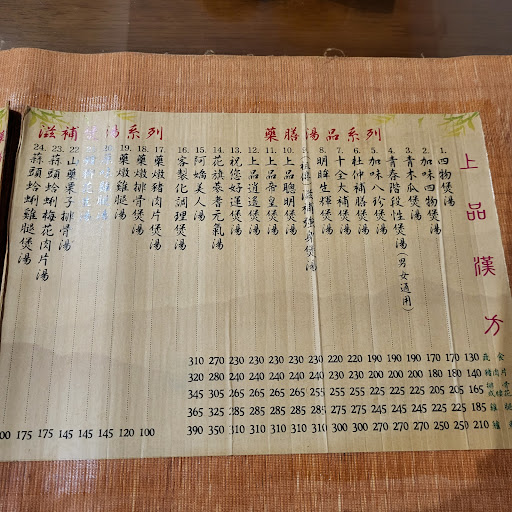 上品漢方
藥膳湯品系列
1. 四物煲湯
2. 加味四物煲湯
3. 青木瓜煲湯
4. 青春階段性煲湯(男女通用)
5. 加味八珍煲湯
6. 杜仲補膳煲湯
7. 十全大補煲湯
8. 明眸生輝煲湯
9. 滋補強身煲湯
10. 上品聰明煲湯
11. 上品帝皇煲湯
12. 上品逍遙煲湯
13. 祝您好運煲湯
14. 花旗蔘耆元氣湯
15. 阿嬌美人湯
16. 家製化調理煲湯
滋補 湯系列
17. 藥燉豬肉片煲湯
18. 藥燉排骨煲湯
19. 藥燉雞腿湯
22. 山藥栗子排骨湯
23. 蒜頭蛤蜊梅花肉片湯
24. 蒜頭蛤蜊雞腿煲湯
310 270 230 230 230 230 230 220 220 220 190 190 190 170 170 130 蔬食
320 280 240 240 240 240 240 230 230 230 200 200 200 180 180 140 豬肉片
345 305 265 265 265 265 265 255 255 255 225 225 225 205 205 165
365 325 285 285 285 285 285 275 275 275 245 245 245 225 225 185 雞腿
175 175 145 145 145 120 100 390 350 310 310 310 310 310 300 300 300 270 270 270 250 250 210